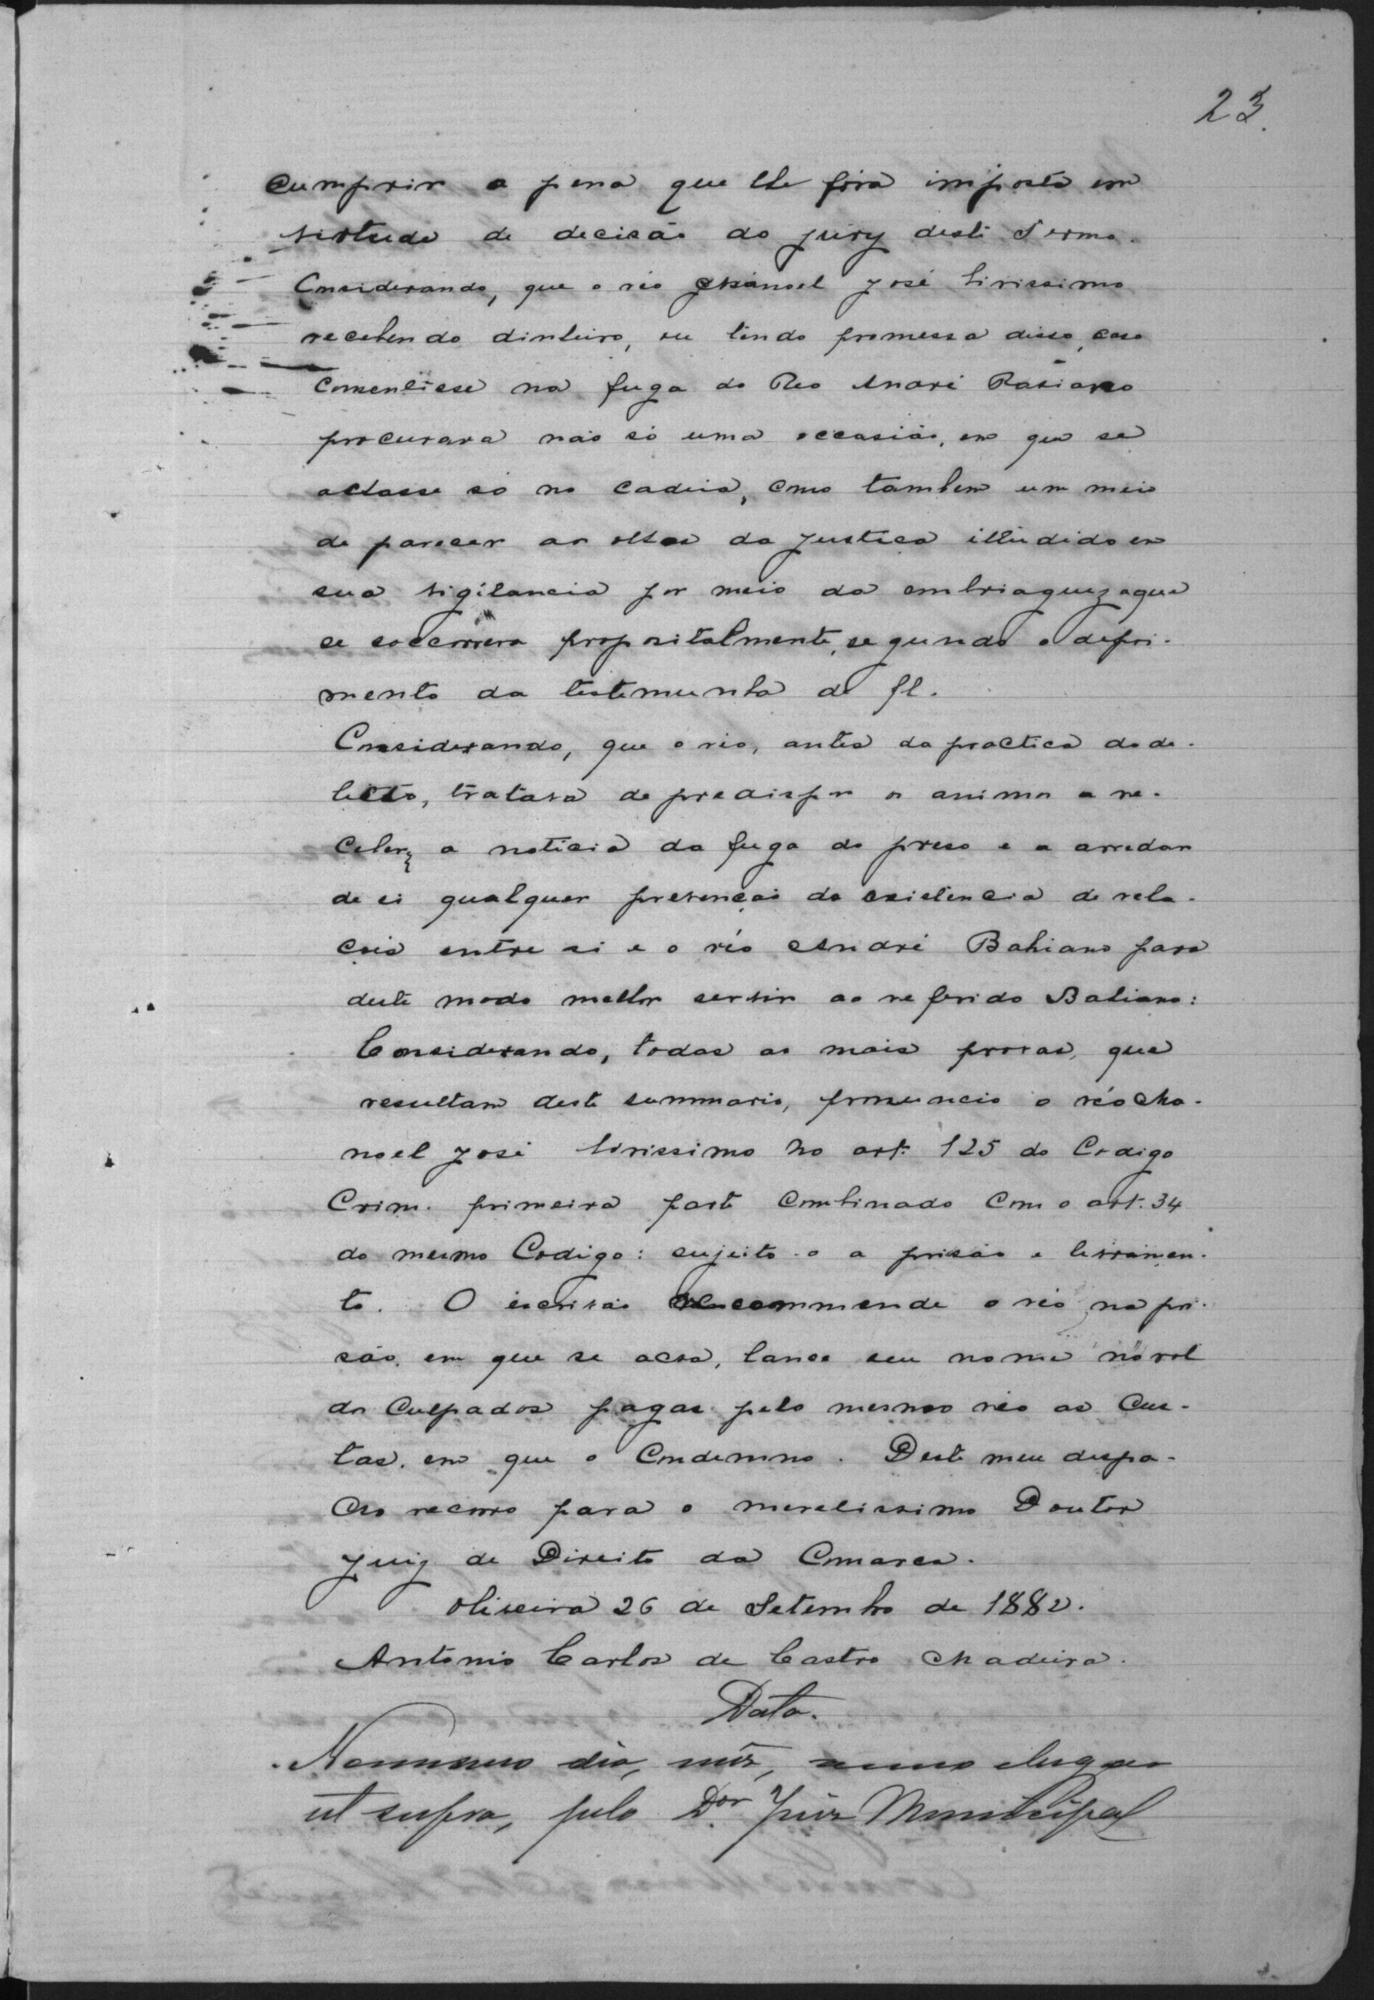 23.
cumprir a pena que lhe fôra imposta em
virtude de decisão do jury deste Termo.
Considerando, que o réo Manoel José Virissimo
recebendo dinheiro, ou tendo promessa disso, caso
comentisse na fuga do Reo André Bahiano
procurara não só uma occasião, em que se
achasse só na cadeia, como tambem um meio
de parecer aos olhos da justiça illudido em
sua vigilancia por meio da embriaguez a que
se soccorrera propositalmente, segundo o depoi-
mento da testemunha de fl.
Considerando, que o réo, antes da practica do de-
licto, tratava de predispor os animos a re-
ceber a noticia da fuga do preso e a arredar
de si qualquer prevenção da existencia de rela-
ções entre si e o réo André Bahiano para
deste modo melhor servir ao referido Bahiano:
Considerando, todas as mais provas, que
resultam deste summario, pronuncio o réo Ma-
noel José Virissimo no art. 125 do Codigo
Crim. primeira parte combinado com o art. 34
do mesmo Codigo: sujeito-o a prisão e livramen-
to. O escrivão recommende o réo na pri-
são, em que se acha, lance seu nome no rol
dos culpados pagas pelo mesmo réo as cus-
tas, em que o condemno. Deste meu despa-
cho recorro para o meretissimo Doutor
Juiz de Direito da Comarca.
Oliveira 26 de Setembro de 1882.
Antonio Carlos de Castro Madeira.
Data.
No mesmo dia, mêz, anno e lugar
ut supra, pelo Dor. Juiz Municipal